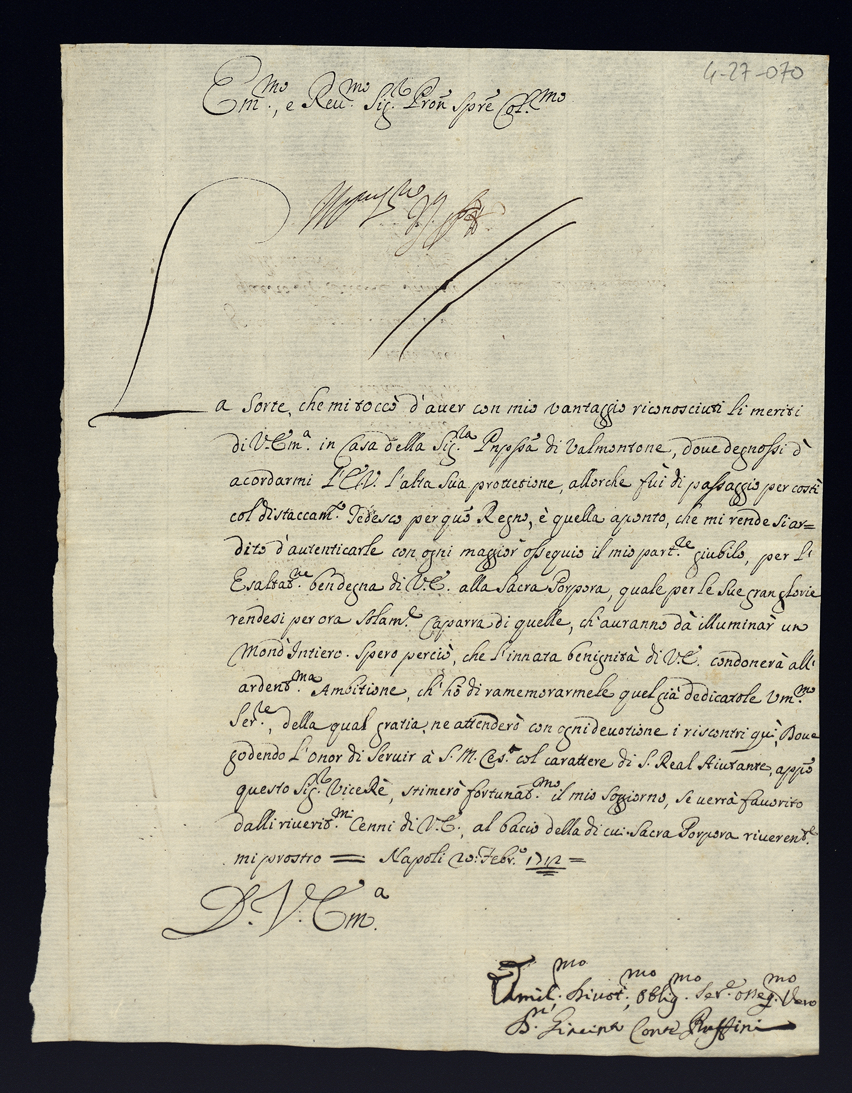 4-27-070
Em.mo, e Reu.mo Sig.r Pron Spre Col.mo
La Sorte, che mi toccò d'auer con mio vantaggio riconosciuti li meriti
di V. Em.a in Casa della Sig.ra Pnppa di Valmontone, doue degnossi d'
acordarmi l'E.V. l'alta Sua protettione, allorche fui di passaggio per costì
col distaccam.to Tedesco per quo Regno, è quella aponto, che mi rende si ar=
dito d'autenticarle con ogni maggior ossequio il mio part.re giubilo, per l'
Esaltat.ne ben degna di V.E. alla Sacra Porpora, quale per le Sue gran glorie
rendesi per ora solam.te Caparra di quelle, ch'auranno dà illuminar un
Mond'Intiero. Spero perciò, che l'innata benignità di V.E. condonerà all'
ardent.ma Ambitione, ch'hò di ramemorarmele quel già dedicatole Um.mo
Ser.re, della qual gratia, ne attenderò con ogni deuotione i riscontri quì, Doue
godendo l'onor di Seruir à S.M. Ces.a col carattere di S. Real Aiutante, appo
questo Sig.r ViceRè, stimerò fortunat.mo il mio Soggiorno, se verrà fauorito
dalli riuerit.mi Cenni di V.E., al bacio della di cui Sacra Porpora riuerent.e
mi prostro = Napoli 20: Febr.o 1712 =
D. V. Em.a
Umil.mo, Diuot.mo, Oblig.mo Ser.e osseq.mo Vero
Conte Ruffini